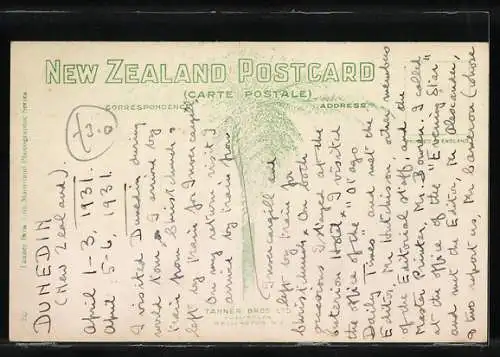 NEW ZEALAND POSTCARD
(CARTE POSTALE)
CORRESPONDENCE
ADDRESS
TANNER BROS LTD
WELLINGTON, N.Z.
DUNEDIN
(New Zealand).
April 1-3, 1931.
April 5-6, 1931.
I visited Dunedin during
world tour. I arrived by
train from Christchurch &
left by train for Invercargill.
On my return visit I
arrived by train from
Invercargill and
left by train for
Christchurch. On both
occasions I stayed at the
Hotel. I visited
the office of the "Otago
Daily Times" and met the
Editor, Mr Hutchison, other members
of the Editorial staff, and the
Master Printer, Mr. Bowen. I called
at the office of the "Evening Star"
and met the Editor, Mr Alexander,
& two reporters, Mr Cameron (whose